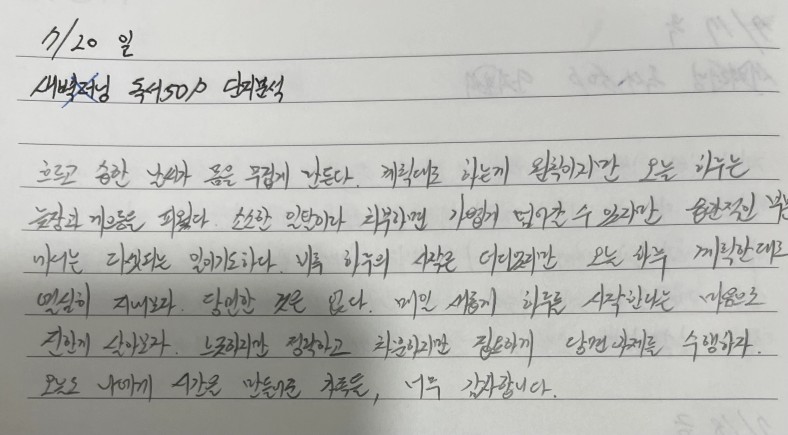 7/20 일
새벽러닝 독서50p 단지분석
흐르고 습한 날씨가 몸을 무겁게 만든다. 계획대로 하는게 원칙이지만 오늘 하루는
늦장과 게으름을 피웠다. 소소한 일탈이라 치부하면 가볍게 넘어갈 수 있지만 습관적인 부분
마저는 다섯되는 일이기도하다. 비록 하루의 시작은 더디었지만 오늘 하루 계획한대로
열실히 지내보자. 당연한 것은 없다. 매일 새롭게 하루를 시작한다는 마음으로
진한게 살아보자. 느긋하지만 정확하고 차분하지만 필요하게 당면과제를 수행하자.
오늘도 나에게 시간을 만들어준 가족들, 너무 감사합니다.